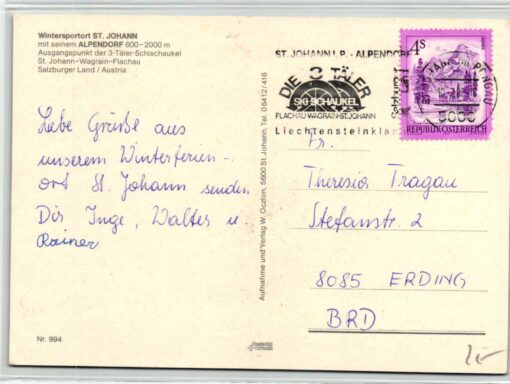 Wintersportort ST. JOHANN
mit seinem ALPENDORF 600–2000 m
Ausgangspunkt der 3-Täler-Schischaukel
St. Johann-Wagrain-Flachau
Salzburger Land / Austria
Liebe Grüße aus
unserem Winterferien-
ort St. Johann senden
Dir Inge, Walter u.
Rainer
Nr. 994
Aufnahme und Verlag W. Oczlon, 5600 St. Johann, Tel. 0 6412 / 416
ST. JOHANN I. P. - ALPENDORF
DIE 3 TÄLER
SKI-SCHAUKEL
FLACHAU-WAGRAIN-ST.JOHANN
Liechtensteinkla
4S
REPUBLIK ÖSTERREICH
5600
Fr.
Theresia Tragau
Stefanstr. 2
8085 ERDING
BRD